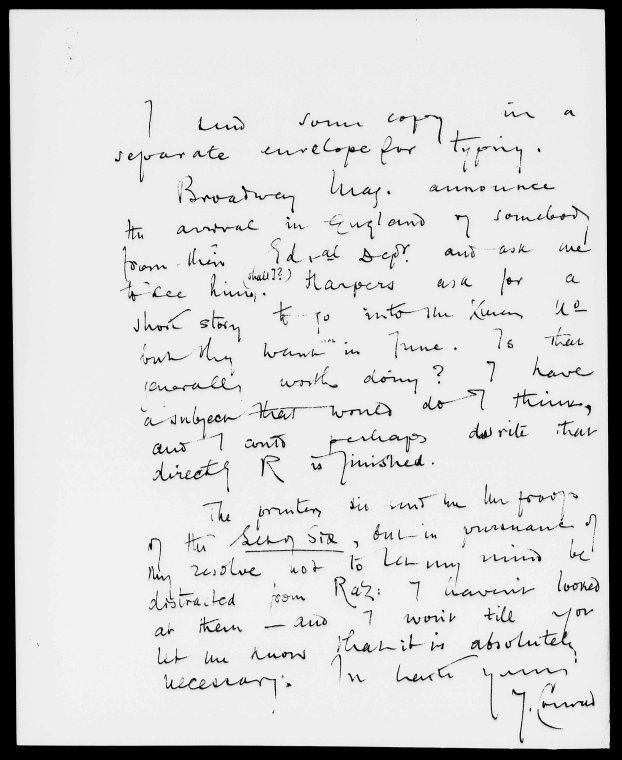 I send some copy in a
separate envelope for typing.
Broadway Mag. announce
the arrival in England of somebody
from their Ed-al Dept. and ask me
to see him. (shall I?) Harpers ask for a
short story to go into the Xmas No
but they want it in June. Is that
generally worth doing? I have
a subject that would do I think,
and I could perhaps write that
directly R is finished.
The printers did send me the proofs
of the Set of Six, but in pursuance of
my resolve not to let my mind be
distracted from Raz: I haven't looked
at them — and I won't till you
let me know that it is absolutely
necessary. In haste yours
J. Conrad